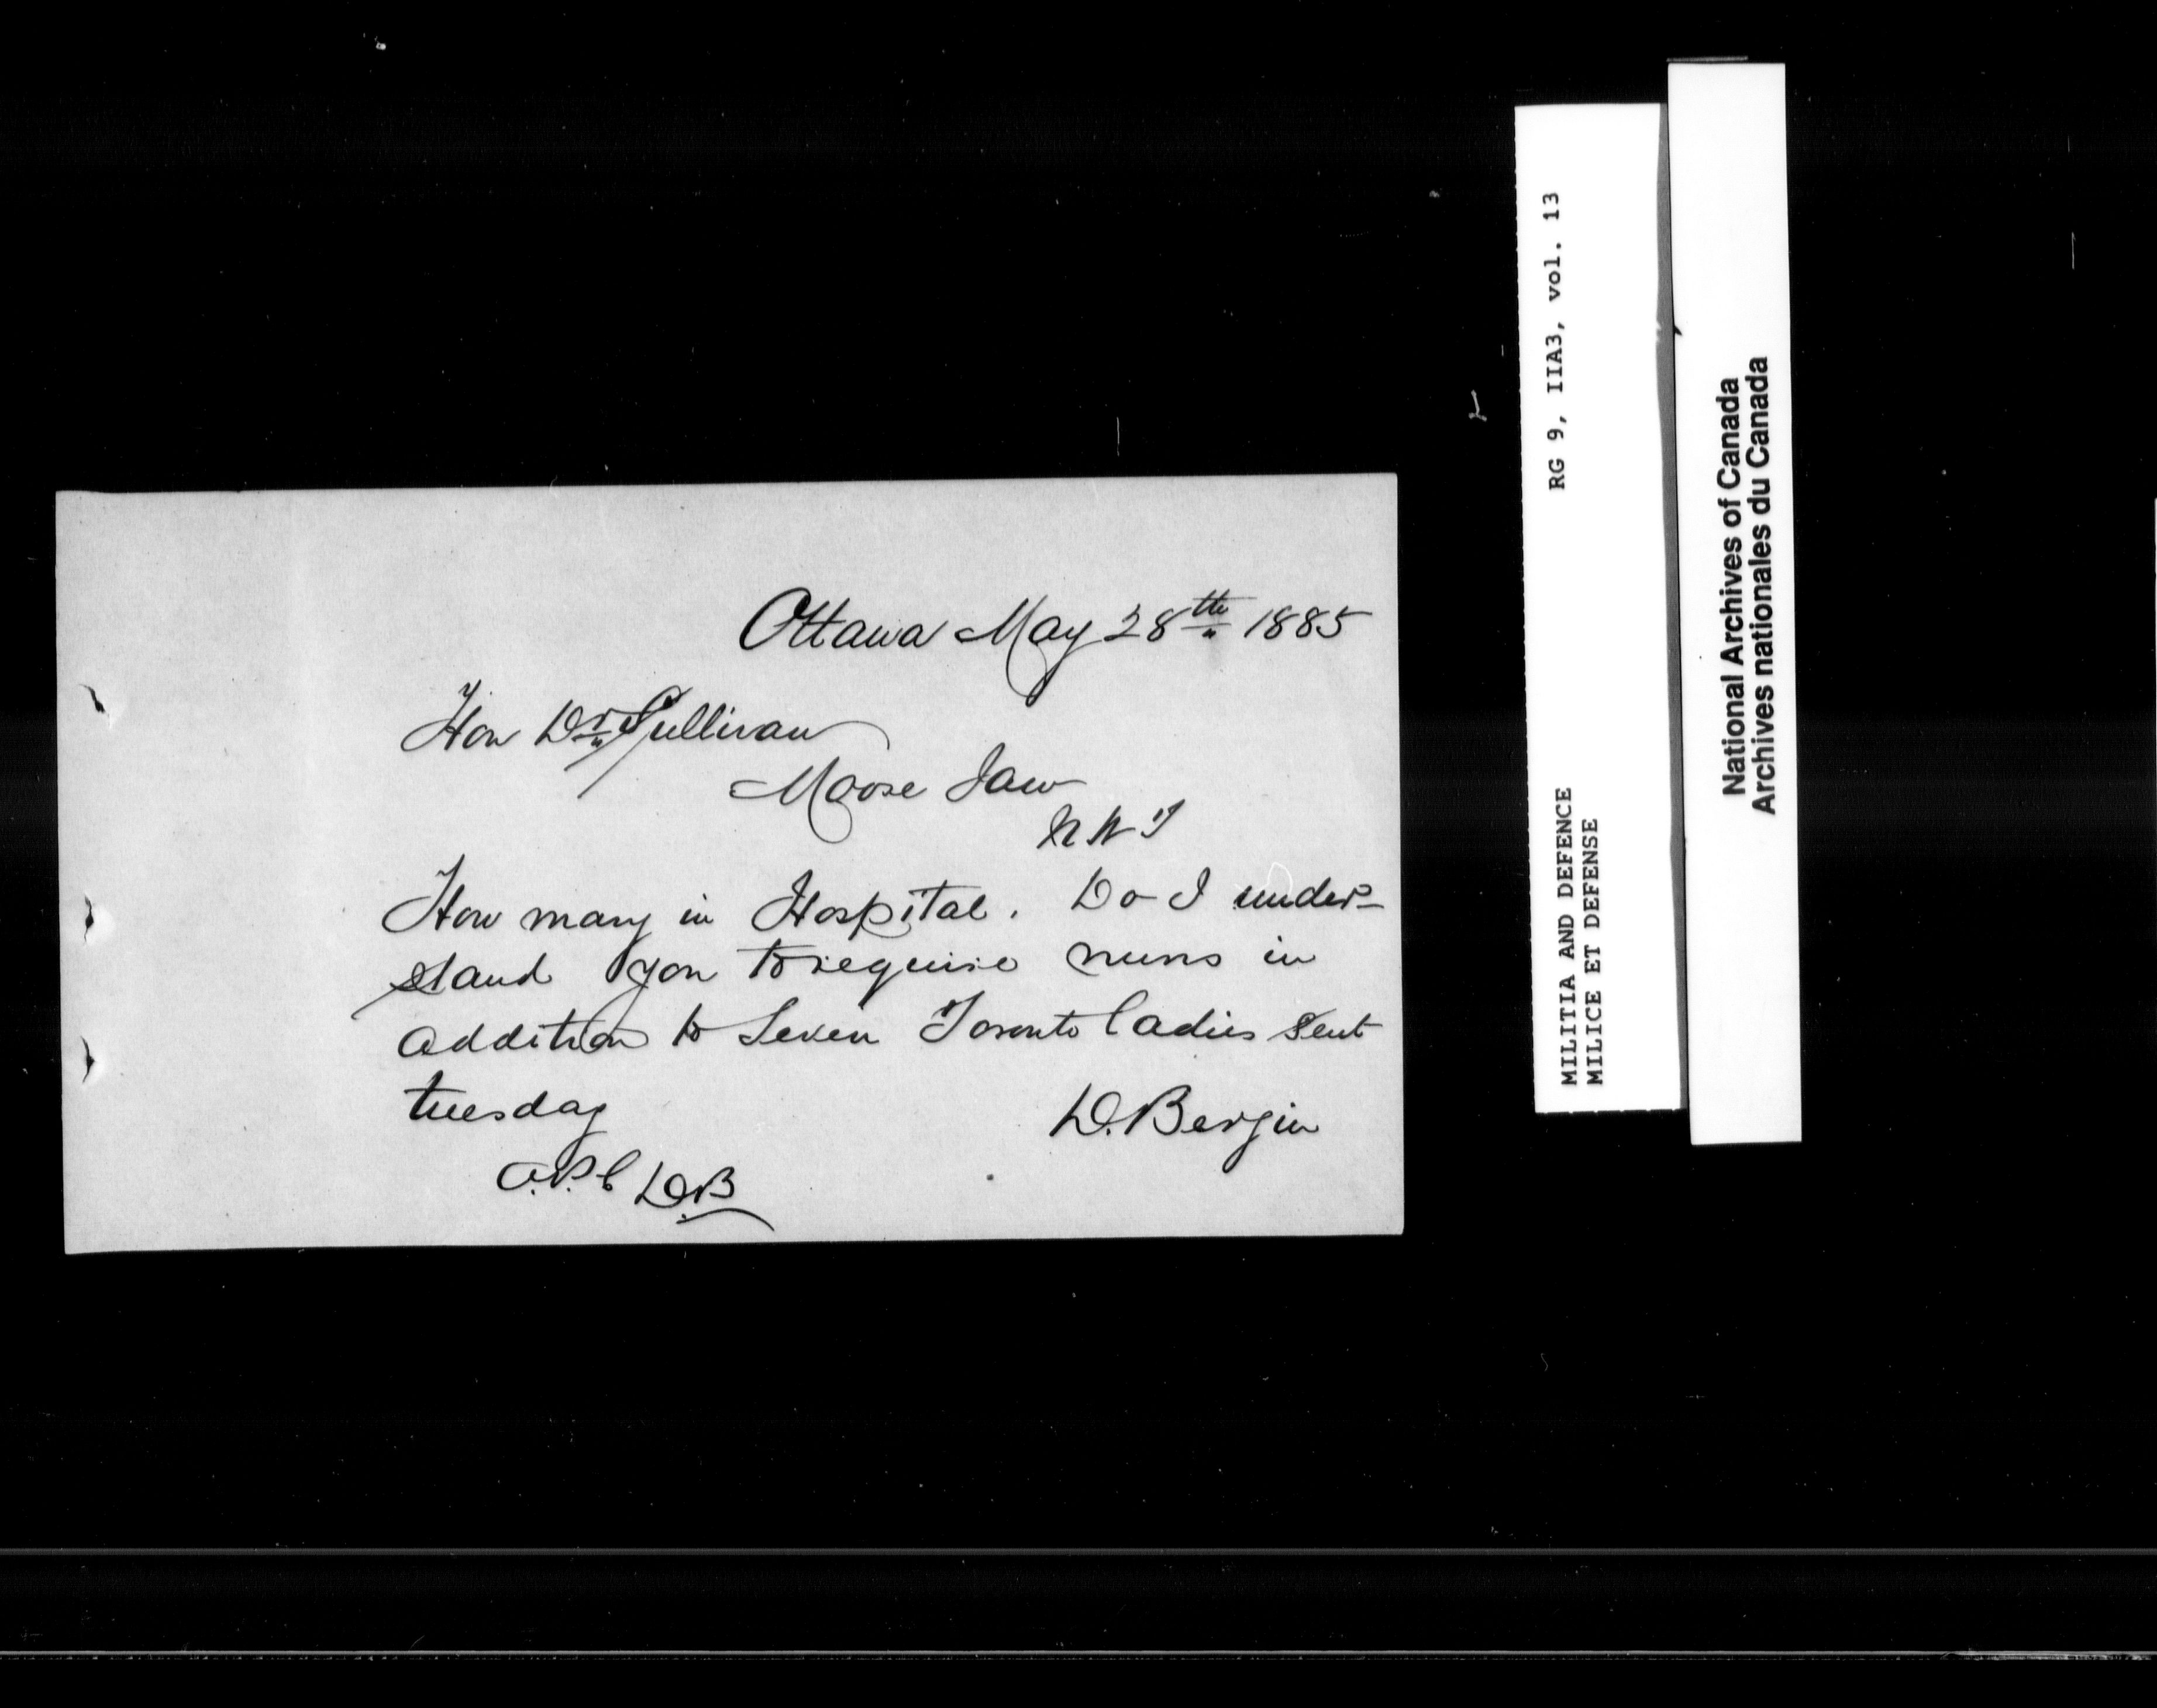 Ottawa May 28th 1885
Hon Dr Sullivan
Moose Jaw
N W T
How many in Hospital. Do I under-
stand you to require nuns in
addition to Seven Toronto ladies sent
tuesday
D. Bergin
D.B
RG 9, IIA3, vol. 13
MILITIA AND DEFENCE
MILICE ET DEFENSE
National Archives of Canada
Archives nationales du Canada